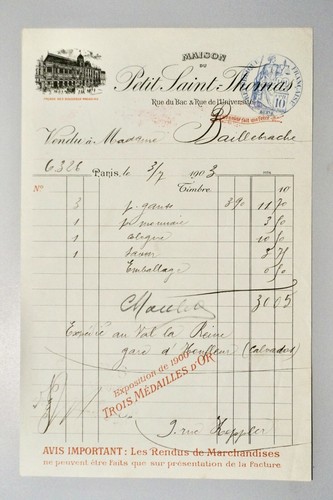 MAISON
DU
Petit Saint-Thomas
Rue du Bac & Rue de l'Université
RÉPUBLIQUE FRANÇAISE
10
Vendu à Madame Baillehache
6326 Paris, le 3/7 1903
Nos Timbre 10
3 p. gants 3 90 11 70
1 p. monnaie 3 50
1 cologne
1 savon 3 75
Emballage
30 05
Expédié au Val la Reine
gare d'Honfleur (Calvados)
Exposition de 1900
TROIS MÉDAILLES D'OR
9. rue Keppler
AVIS IMPORTANT: Les Rendus de Marchandises
ne peuvent être faits que sur présentation de la Facture